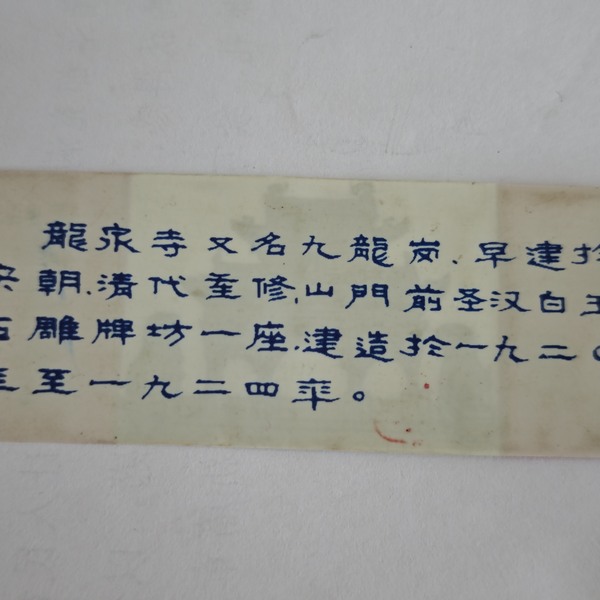 龍泉寺又名九龍岗、早建扵
宋朝、清代重修、山門前圣汉白玉
石雕牌坊一座、建造扵一九二〇
年至一九二四年。